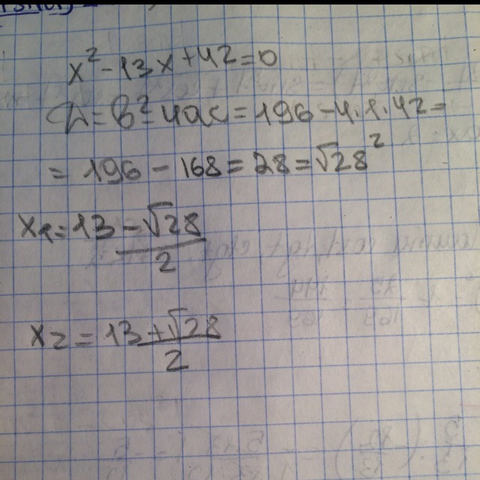 x² - 13x + 42 = 0
D = b² - 4ac = 196 - 4·1·42 =
= 196 - 168 = 28 = √28²
x₁ = 13 - √28
2
x₂ = 13 + √28
2